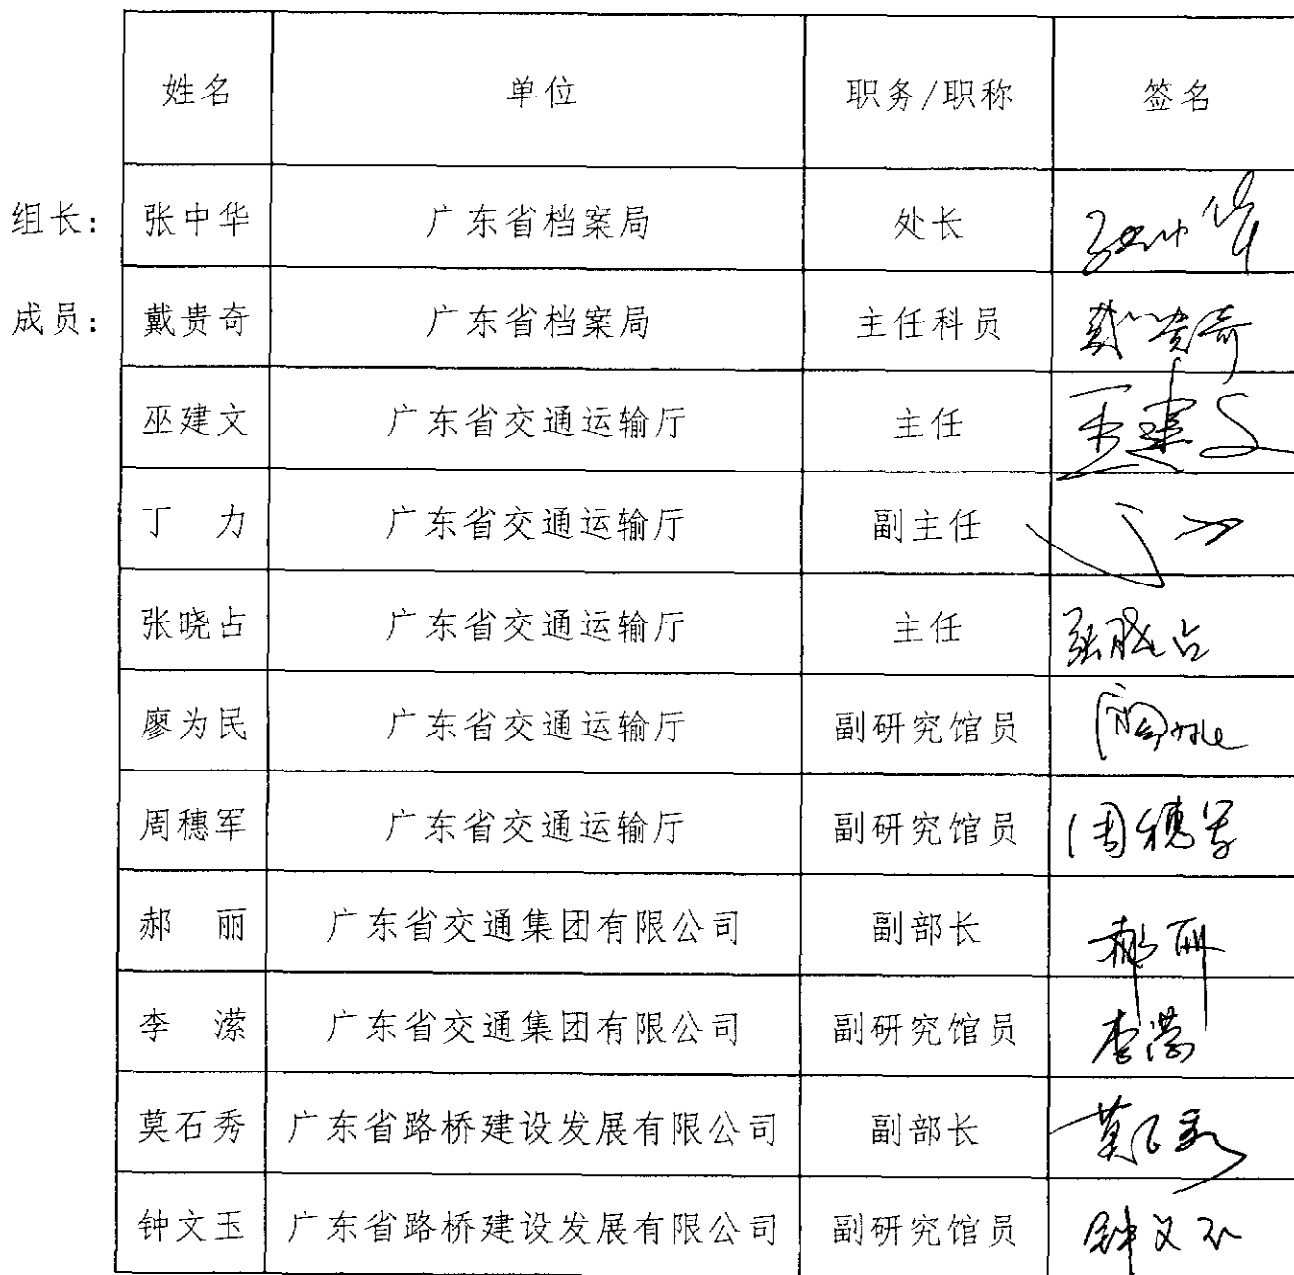 姓名 单位 职务/职称 签名
组长: 张中华 广东省档案局 处长 张中华
成员: 戴贵奇 广东省档案局 主任科员 戴贵奇
巫建文 广东省交通运输厅 主任 巫建文
丁 力 广东省交通运输厅 副主任 丁力
张晓占 广东省交通运输厅 主任 张晓占
廖为民 广东省交通运输厅 副研究馆员
周穗军 广东省交通运输厅 副研究馆员 周穗军
郝 丽 广东省交通集团有限公司 副部长 郝丽
李 潆 广东省交通集团有限公司 副研究馆员 李潆
莫石秀 广东省路桥建设发展有限公司 副部长 莫石秀
钟文玉 广东省路桥建设发展有限公司 副研究馆员 钟文玉